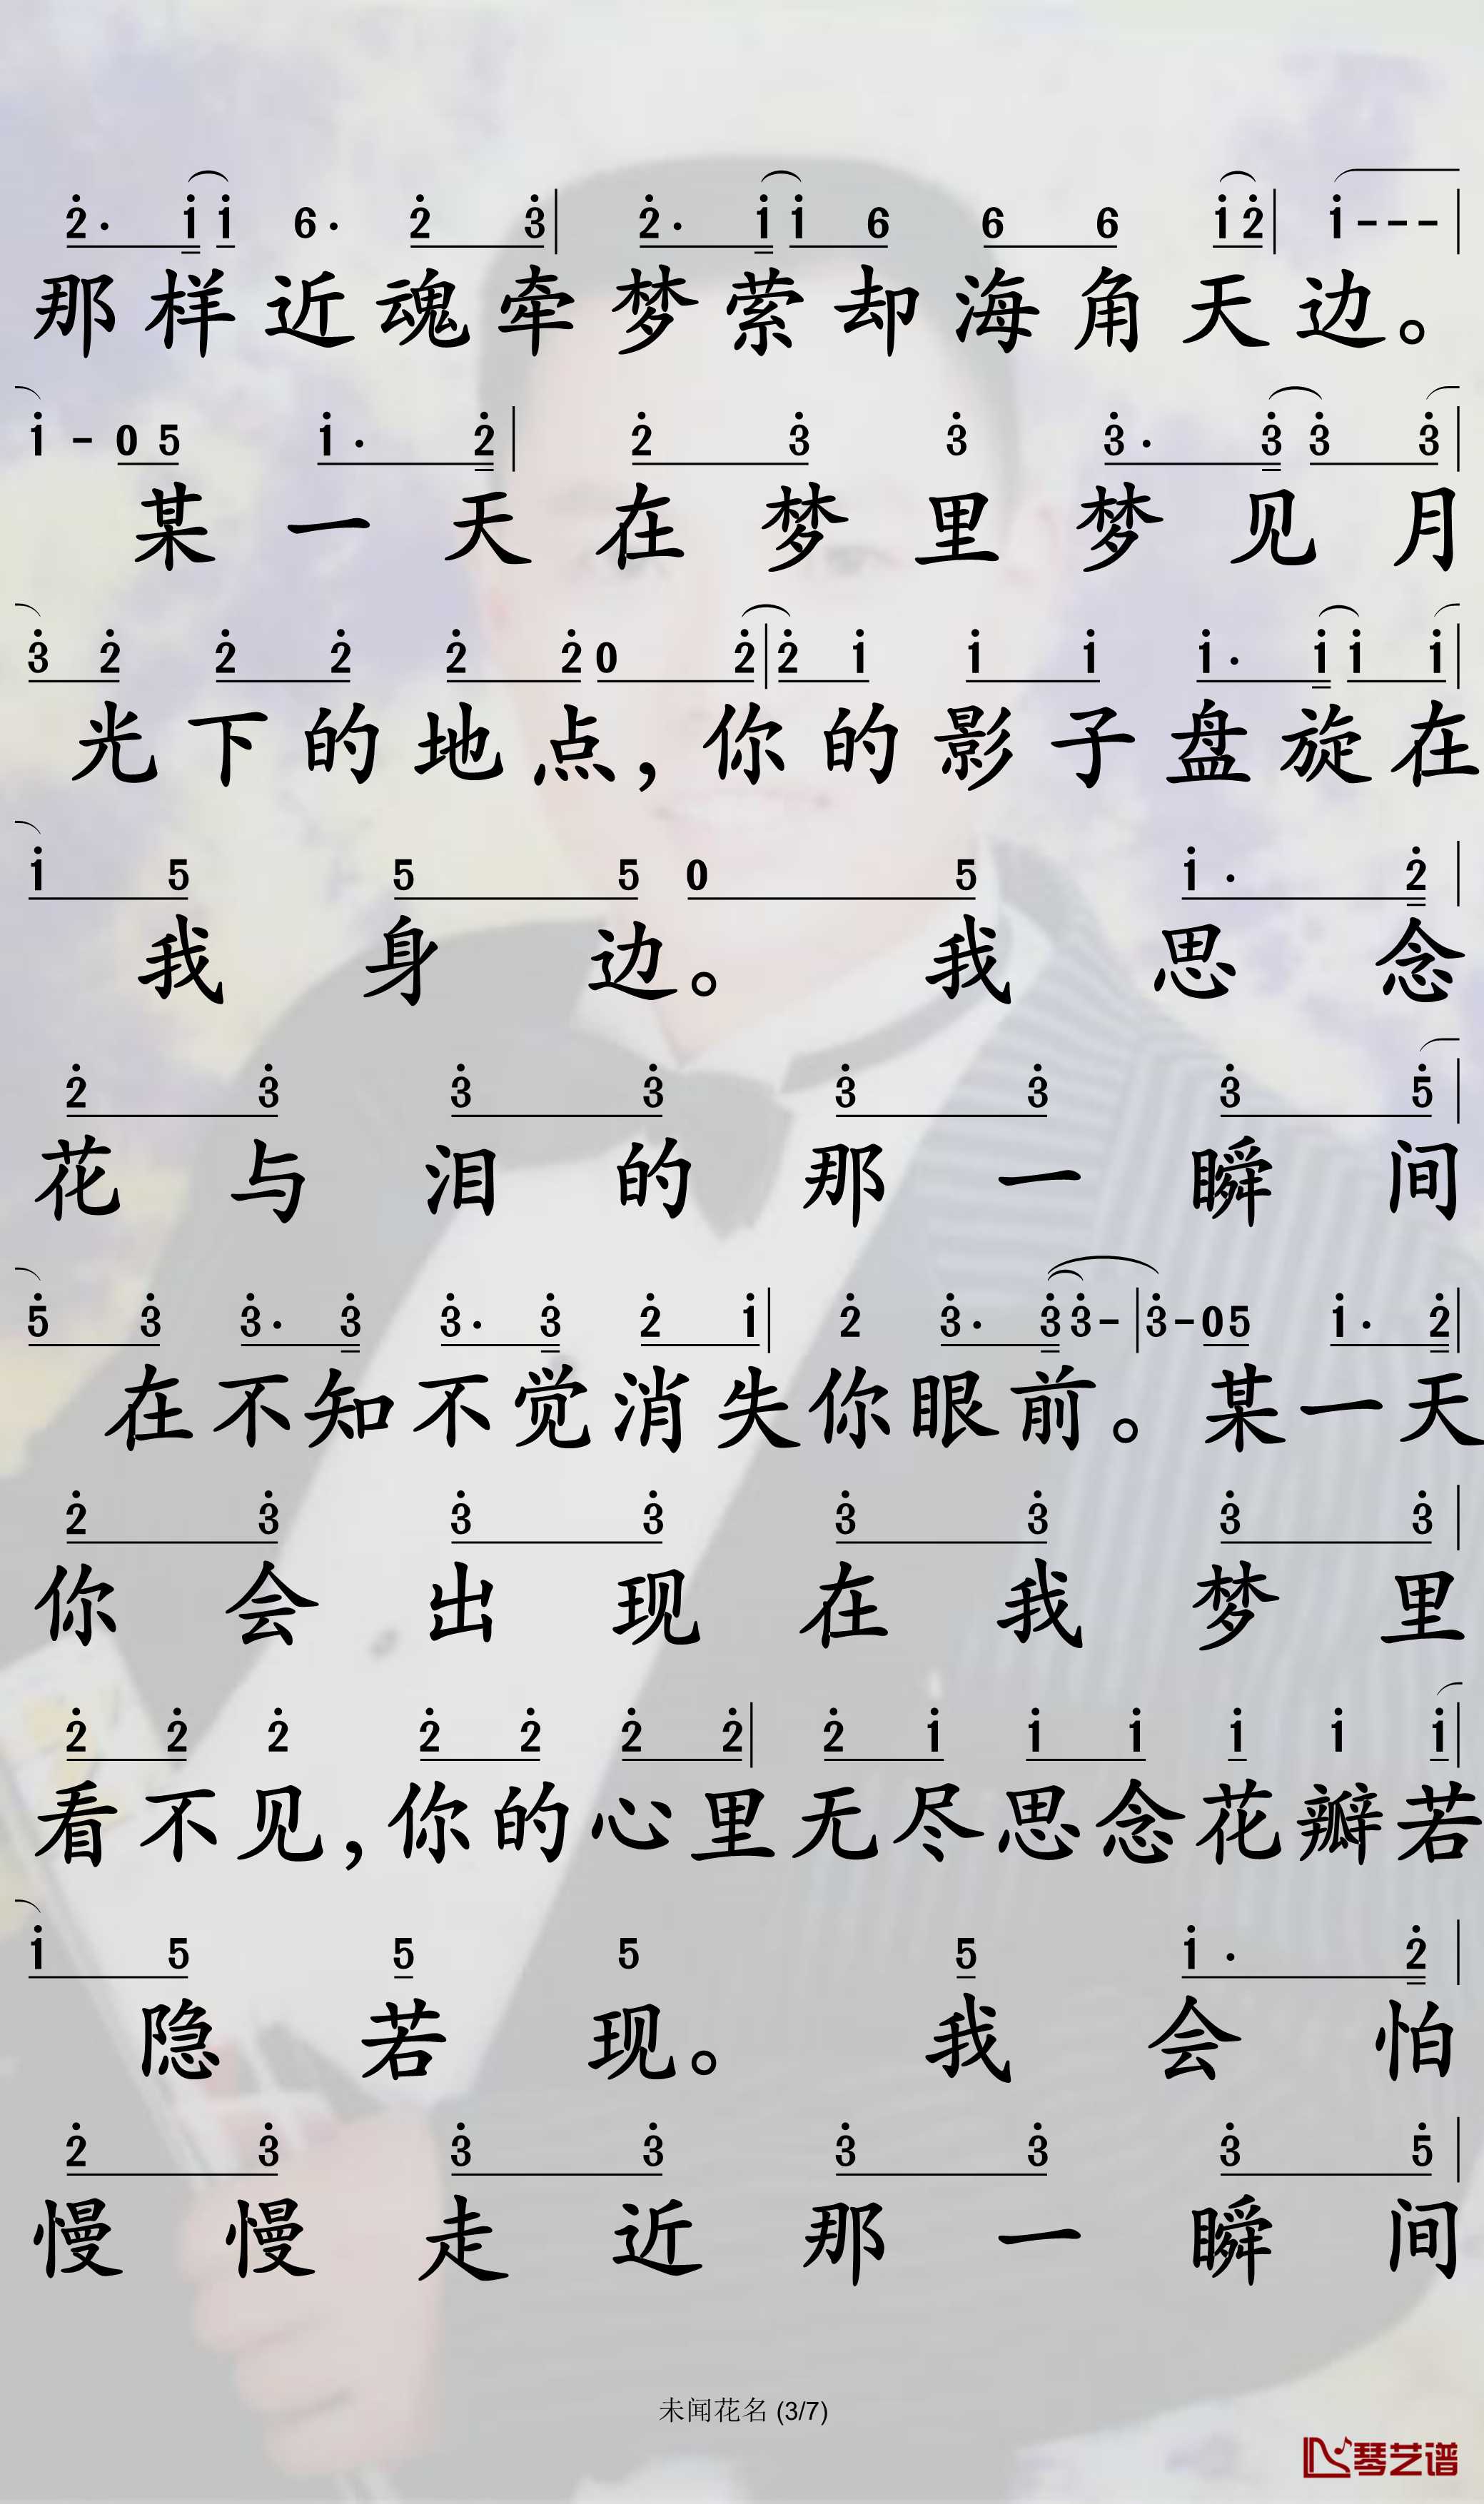 2̇· i̇ i̇ 6· 2̇ 3̇ | 2̇· i̇ i̇ 6 6 6 i̇ 2̇ | i̇ - - - |
那样近魂牵梦萦却海角天边。
i̇ - 0 5 i̇· 2̇ | 2̇ 3̇ 3̇ 3̇· 3̇ 3̇ 3̇ |
某一天在梦里梦见月
3̇ 2̇ 2̇ 2̇ 2̇ 2̇ 0 2̇ | 2̇ i̇ i̇ i̇ i̇· i̇ i̇ i̇ |
光下的地点，你的影子盘旋在
i̇ 5 5 5 0 5 i̇· 2̇ |
我身边。我思念
2̇ 3̇ 3̇ 3̇ 3̇ 3̇ 3̇ 5̇ |
花与泪的那一瞬间
5̇ 3̇ 3̇· 3̇ 3̇· 3̇ 2̇ i̇ | 2̇ 3̇· 3̇ 3̇ - | 3̇ - 0 5 i̇· 2̇ |
在不知不觉消失你眼前。某一天
2̇ 3̇ 3̇ 3̇ 3̇ 3̇ 3̇ 3̇ |
你会出现在我梦里
2̇ 2̇ 2̇ 2̇ 2̇ 2̇ 2̇ | 2̇ i̇ i̇ i̇ i̇ i̇ i̇ |
看不见，你的心里无尽思念花瓣若
i̇ 5 5 5 5 i̇· 2̇ |
隐若现。我会怕
2̇ 3̇ 3̇ 3̇ 3̇ 3̇ 3̇ 5̇ |
慢慢走近那一瞬间
未闻花名 (3/7)
琴艺谱